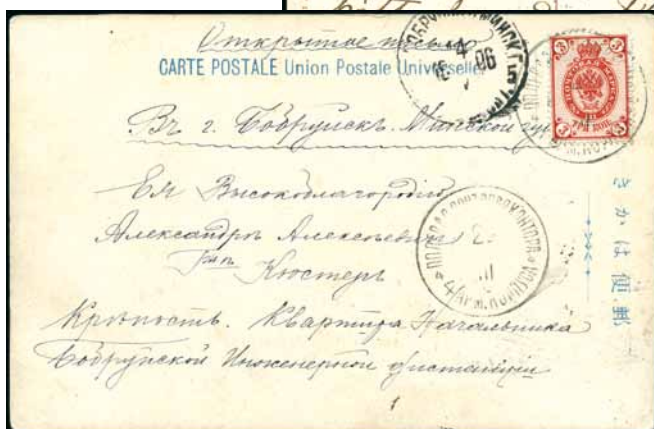 Открытое письмо
CARTE POSTALE Union Postale Universelle
Въ г. Бобруйскъ. Минской гу
Ея Высокоблагородiю
Александрѣ Алексѣевнѣ
Кюстеръ
Крѣпость. Квартира Начальника
Бобруйской Инженерной дистанцiи
БОБРУЙСКЪ МИНСК. Г.
4 06
5
3 3
ТРИ КОП.
3 3
ПОЛЕВАЯ ПОЧТОВАЯ КОНТОРА
III
4 АРМ. КОРПУСА
きかは便郵